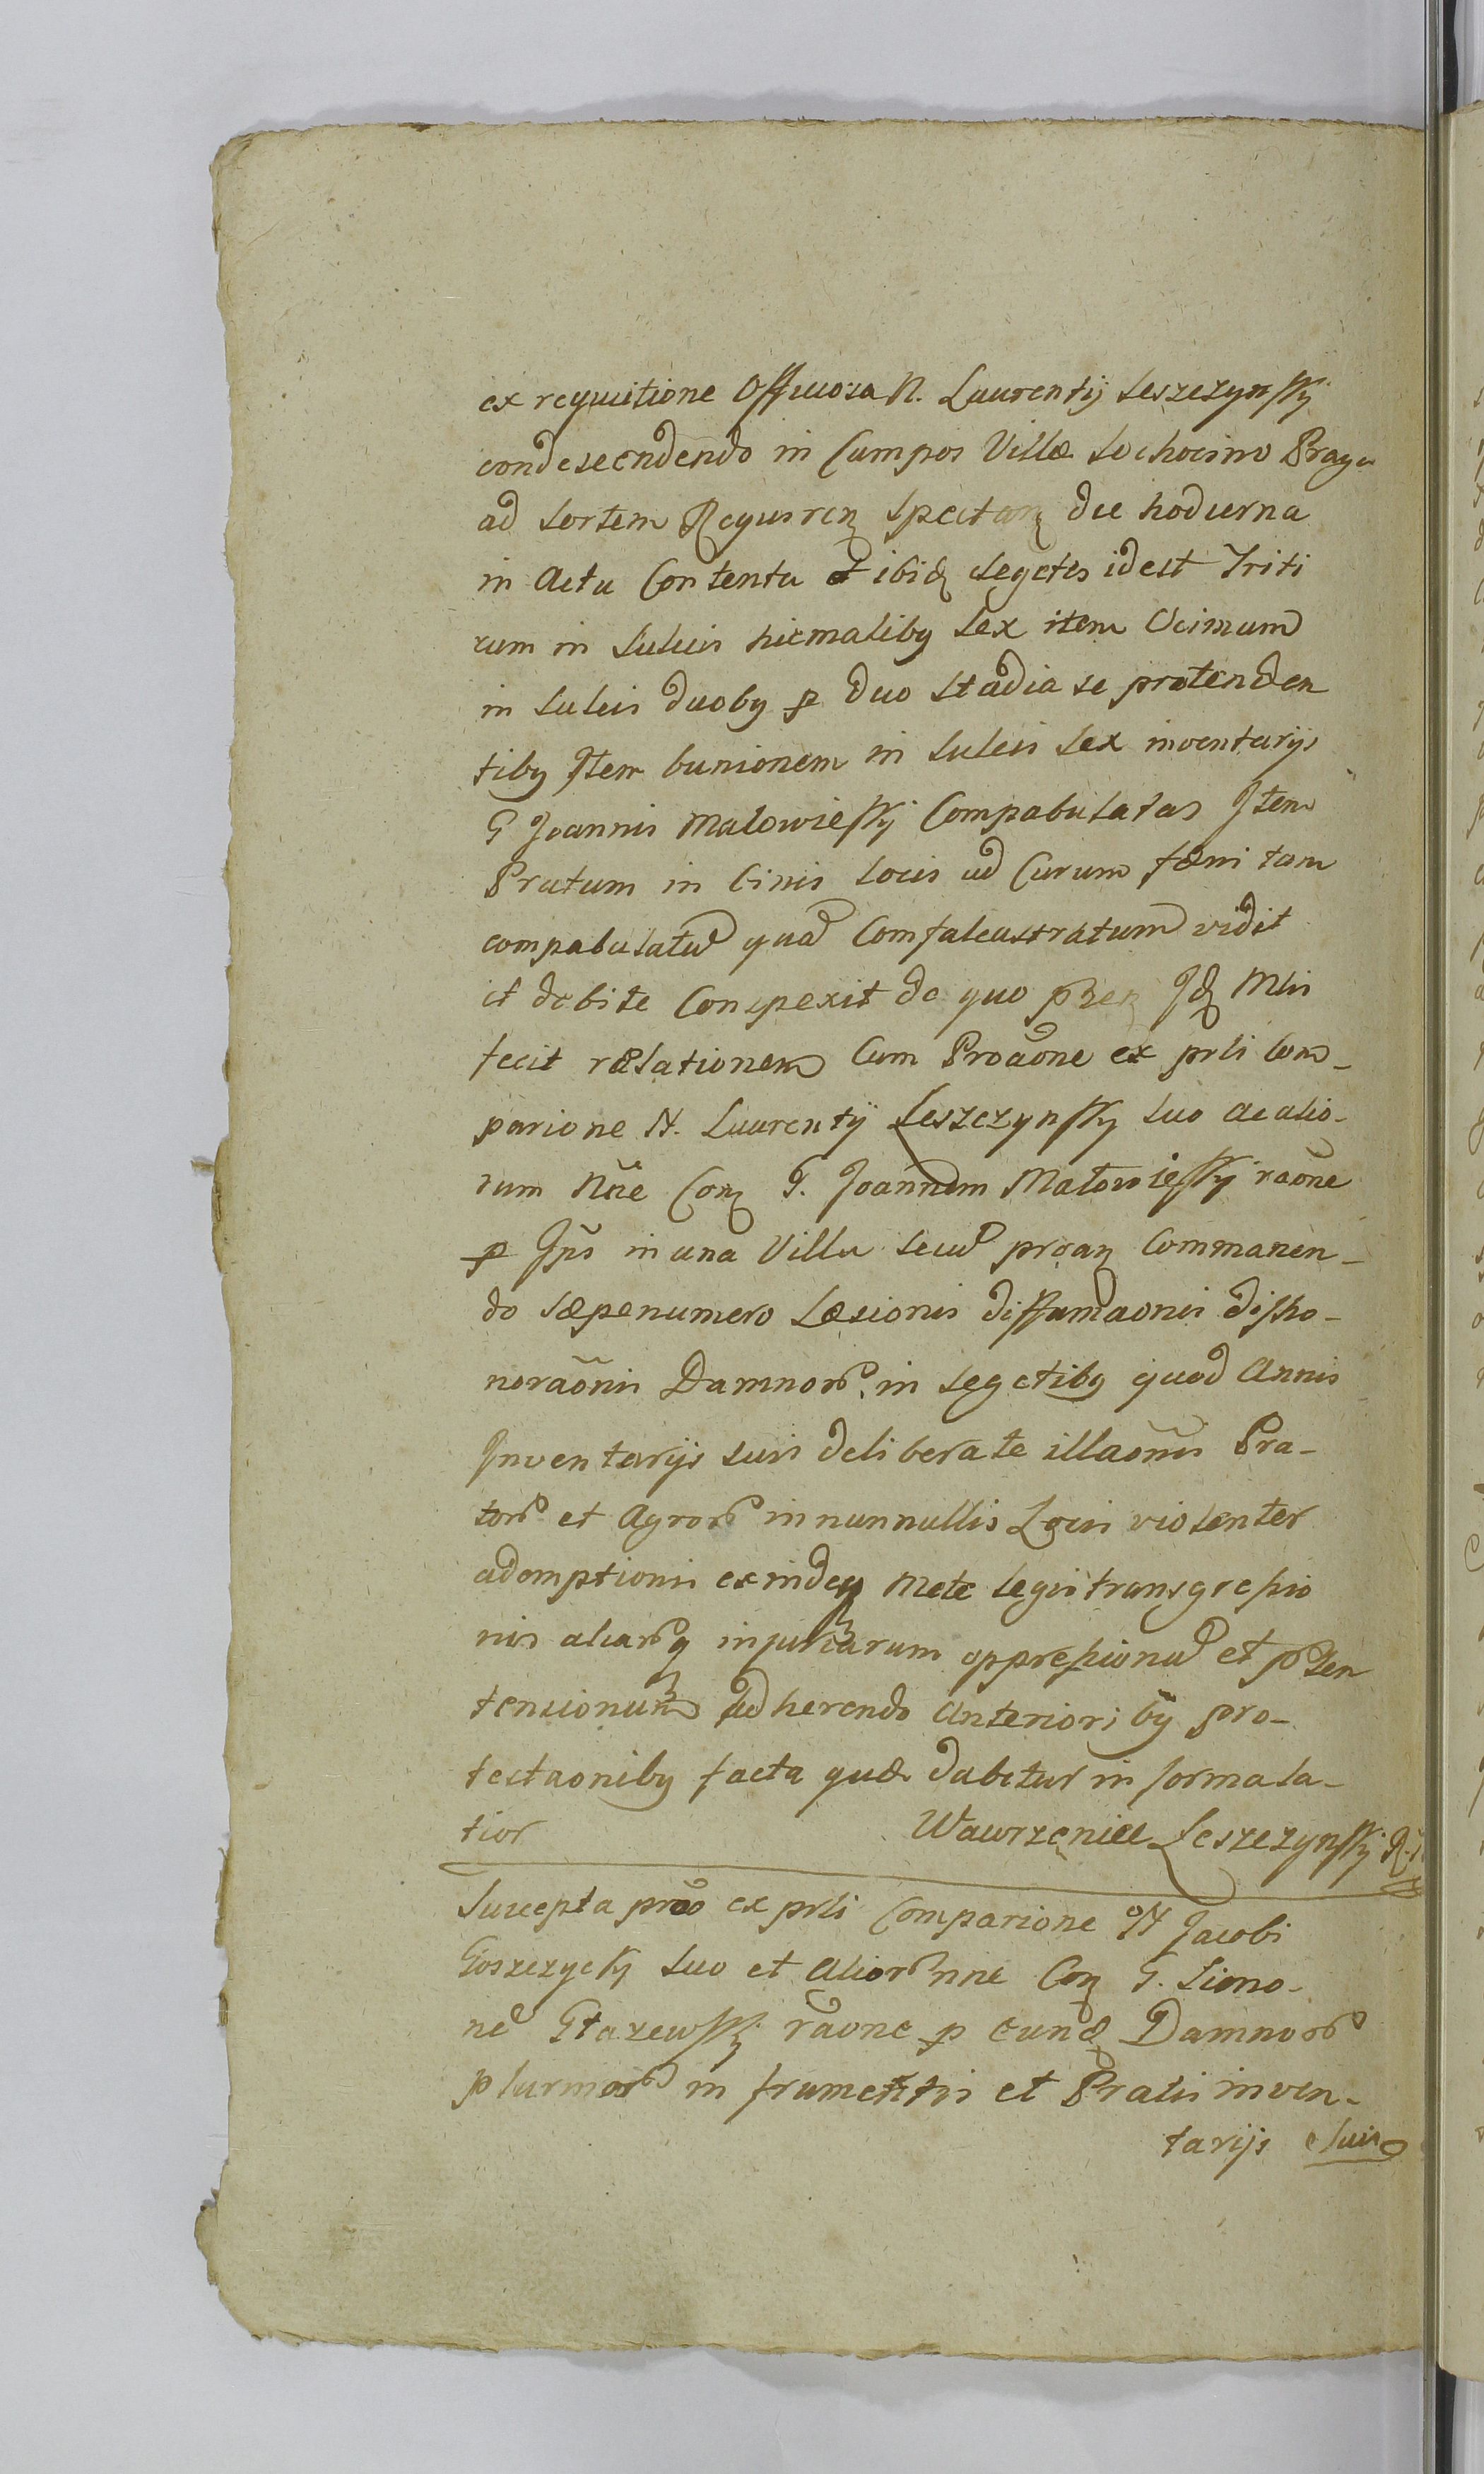 ex requitione Officiosa N. Laurentij Leszczynsky
condescendendo in Campos Villæ Lochocino Praga
ad Sortem Requiren spectan die hodierna
in Actu Contenta et ibid Segetes idest Triti
cum in Sulcis hiemaliby Sex item Ocimum
in Sulcis duoby p duo Stadia se protenden
tiby Item bunionem in Sulcis Sex inventarijs
G Joannis Malowiesky Compabulatas Item
Pratum in binis Locis ad Curum fæni tam
compabulatum quam Comfalcastratum vidit
et debite Conspexit de quo præsen Id Mlis
fecit relationem Cum Proaone ex prli Com-
parione N. Laurentij Leszczynsky Suo ac alio-
rum Nne Con G. Joannem Malowiesky raone
p Ipis in una Villa Secum proan Commanen-
do Sæpenumero Læsionis diffamaonis disho-
noraonis Damnor. in Segetiby quod Annis
Inventarijs suis deliberate illaonis Pra-
tor et Agror in nunnullis Locis violenter
ademptionis exindeq Mete Legis transgressio
nis aliarq injuriarum oppressionum et præten
tensionum adherendo Anterioriby pro-
testaoniby facta quæ dabitur in forma la-
tior Wawrzeniec Leszczynsky
Suscepta prao ex prli Comparione N Jacobi
Goszczycky Suo et Alior nne Con G. Simo-
nem Głazewsky raone p Eund Damnor
plurimor in frumentis et Pratis inven-
tarijs Suis